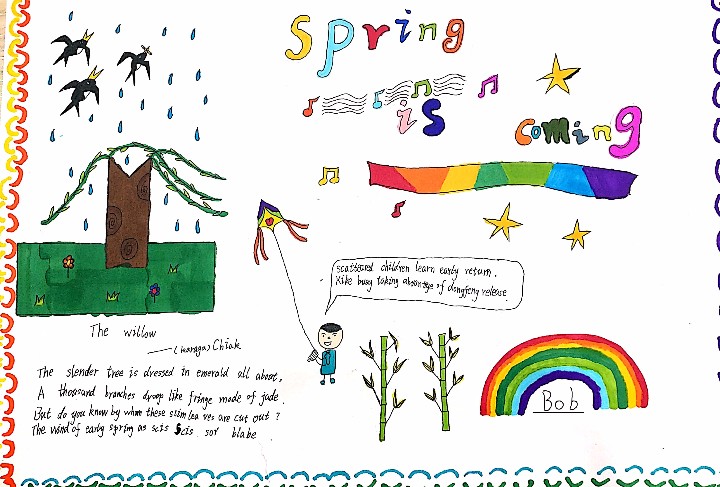 Spring
is
coming
scattered children learn early return.
Kike busy taking advantage of dongfeng release
The willow
Chiak
The slender tree is dressed in emerald all about,
A thousand branches droop like fringe made of jade.
But do you know by whom these slim lea ves are cut out ?
The wind of early spring as scis Scis sor blabe
Bob